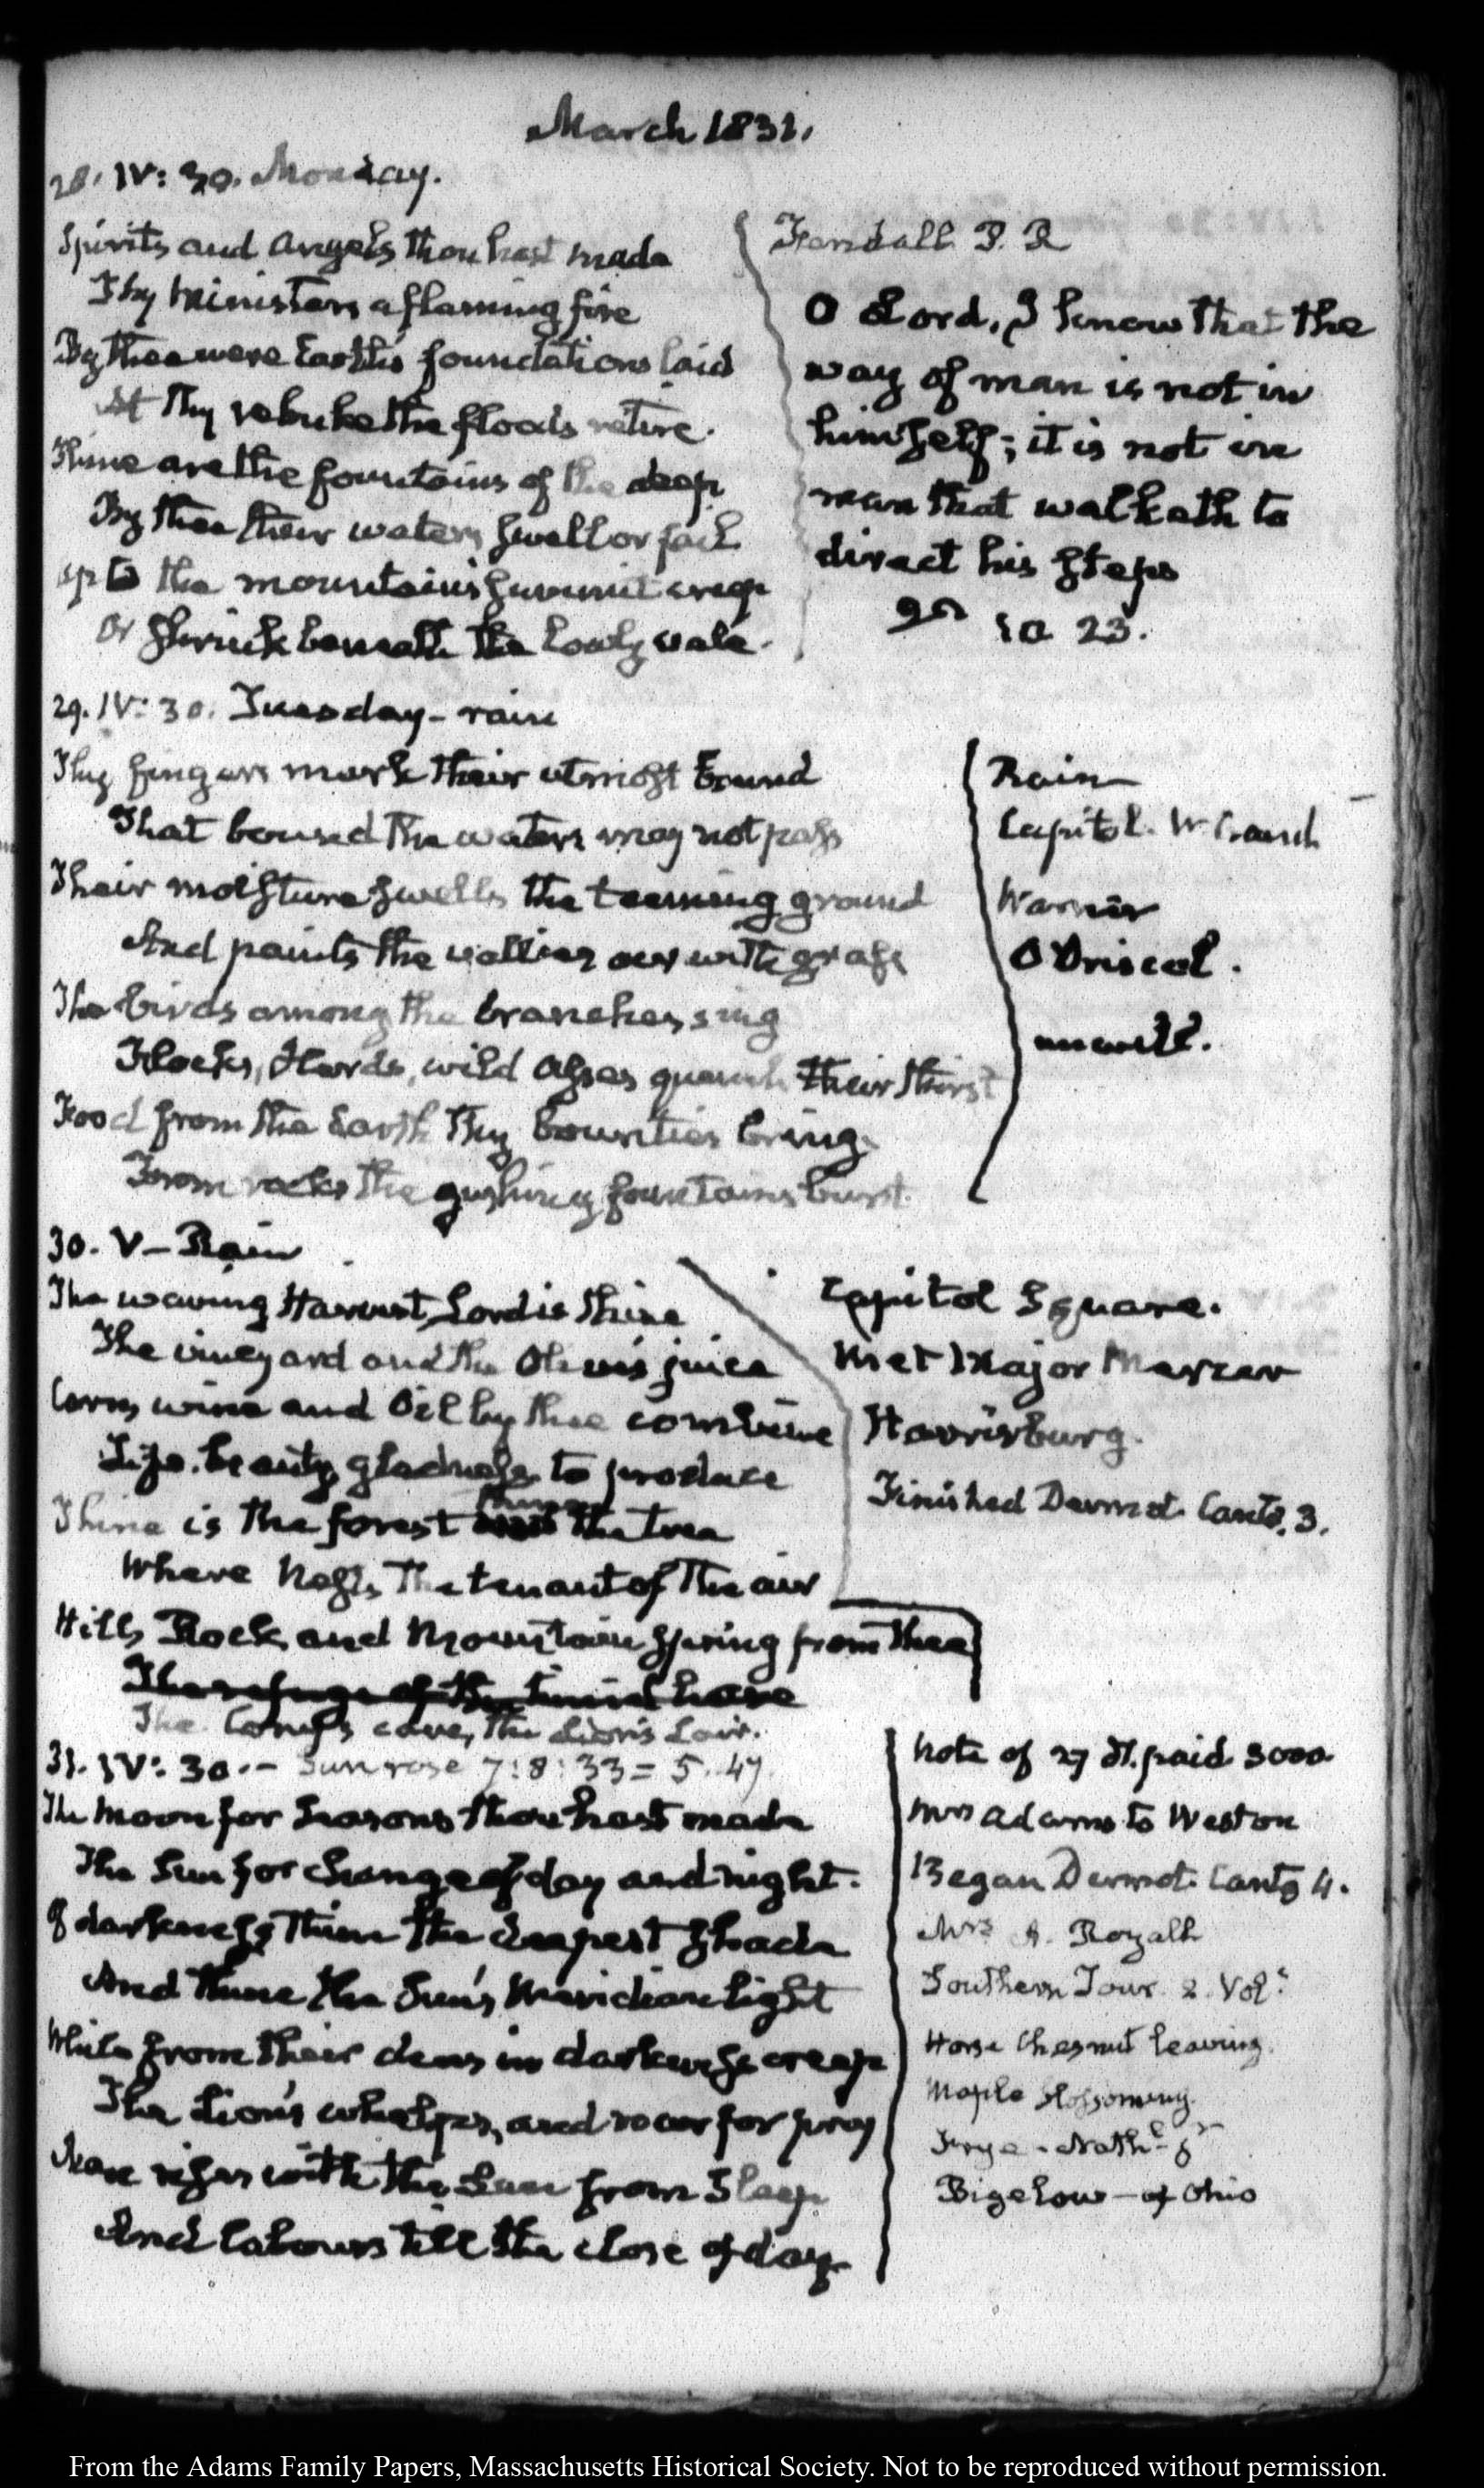 March 1831.
28. IV: 30. Monday.
Spirits and Angels thou hast made
Thy ministers a flaming fire
By thee were Earth's foundations laid
At thy rebuke the floods retire.
Thine are the fountains of the deep
By thee their waters swell or fail
Up to the mountain's summit creep
Or shrink beneath the lowly vale.
Kendall P. R
O Lord, I know that the
way of man is not in
himself; it is not in
man that walketh to
direct his steps
10 23.
29. IV: 30. Tuesday - rain
Thy fingers mark their utmost bound
That bound the waters may not pass
Their moisture swells the teeming ground
And paints the vallies over with grass
The birds among the branches sing
Flocks, Herds, wild asses quench their thirst
Food from the Earth thy bounties bring
From rocks the gushing fountains burst.
Rain
Capitol. W. Cranch
Warner
O'Driscol.
unwell.
30. V - Rain
The waving Harvest, Lord is thine
The vineyard and the Olive's juice
Corn, wine and Oil by thee combine
Life, beauty, gladness to produce
Thine is the forest thine the tree
Where nests the tenant of the air
Hills, Rock, and Mountain spring from thee
The refuge of the timid hare
The Coney's cave, the Lion's Lair.
Capitol Square.
Met Major Mercer
Harrisburg.
Finished Dermot Canto. 3.
31. IV: 30. - Sun rose 7:8:33 = 5..47
The Moon for Seasons thou hast made
The Sun for change of day and night.
Of darkness thine the deepest shade
And thine the Sun's meridian light
While from their dens in darkness creep
The Lion's whelps, and roar for prey
Man rises with the Sun from Sleep
And labours till the close of day
Note of 27 St. paid 3000.
Mrs Adams to Weston
Began Dermot Canto 4.
Mrs A. Royall
Southern Tour. 2. Vols
Horse Chesnut leaving.
Maple blossoming.
Frye - Nathl Jr
Bigelow - of Ohio
From the Adams Family Papers, Massachusetts Historical Society. Not to be reproduced without permission.